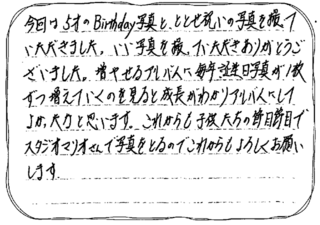 今回は5才のBirthday写真と、ととせ祝いの写真を撮って
いただきました。いい写真を撮っていただきありがとうご
ざいました。増やせるアルバムに毎年誕生日写真が1枚
ずつ増えていくのを見ると成長がわかりアルバムにして
よかったなと思います。これからも子供たちの節目節目で
スタジオマリオさんで写真をとるのでこれからもよろしくお願い
します。